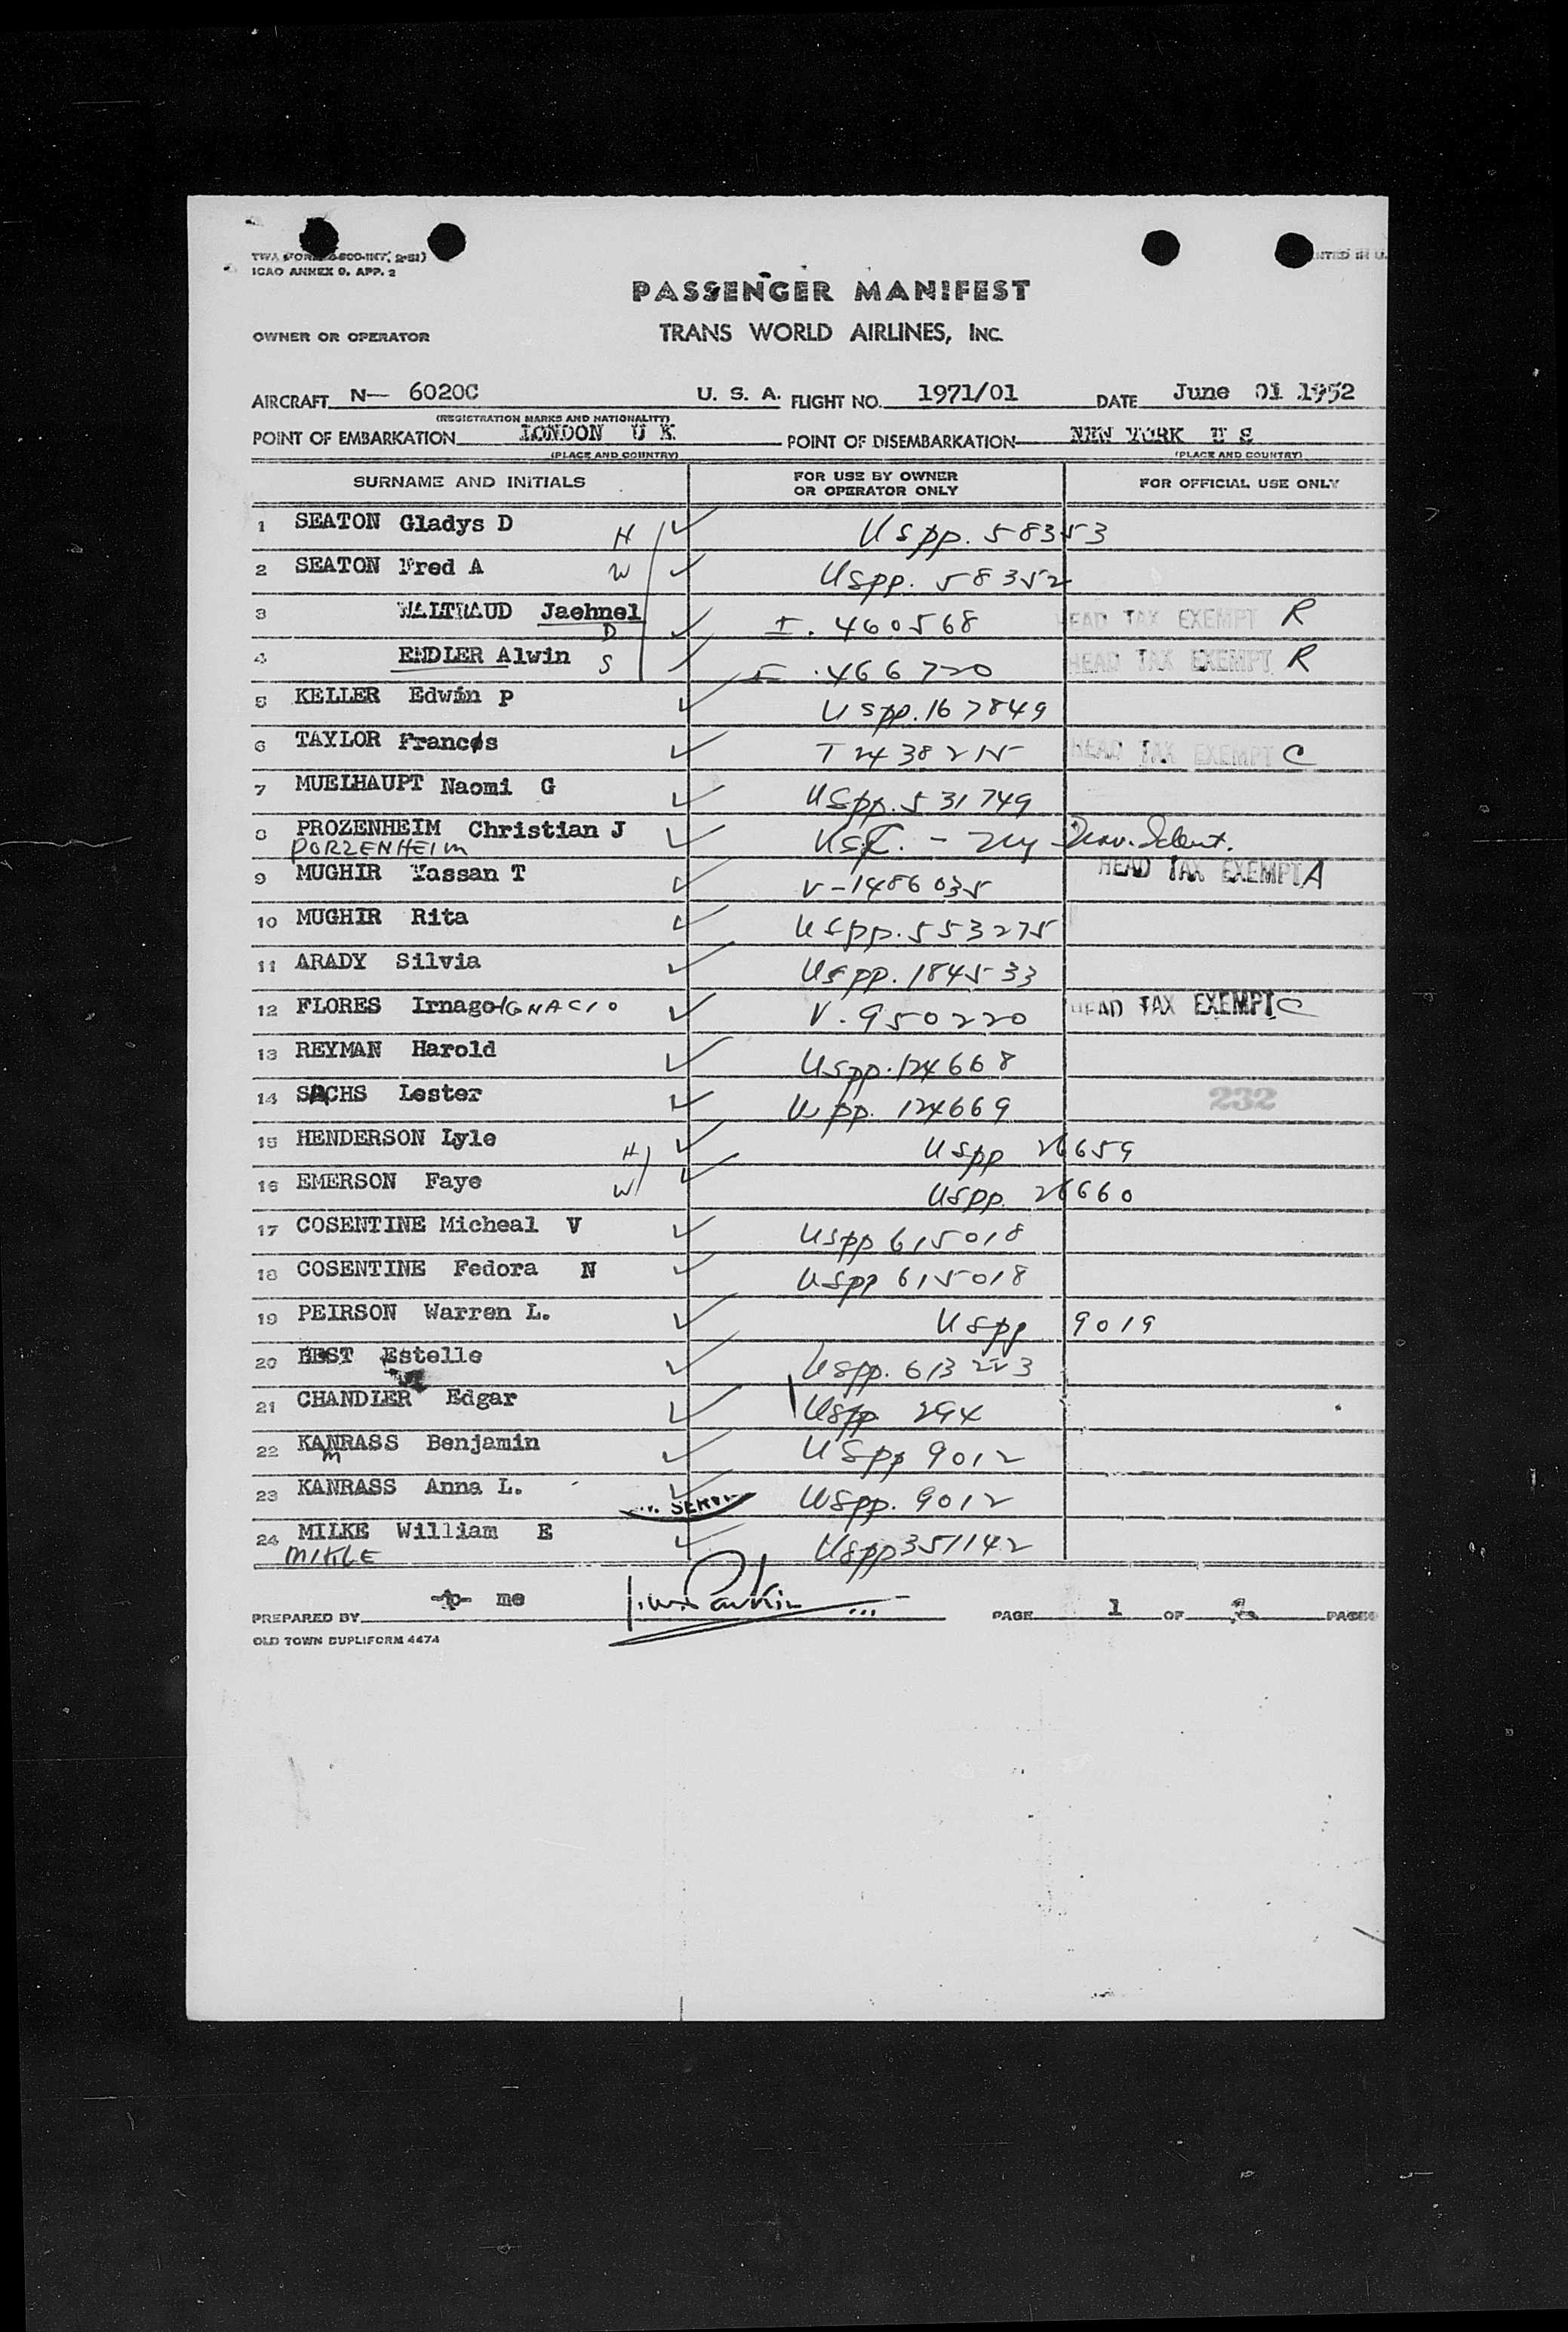 TWA FORM
ICAO ANNEX 9, APP. 2
PASSENGER MANIFEST
OWNER OR OPERATOR TRANS WORLD AIRLINES, INC.
AIRCRAFT N— 6020C U. S. A. FLIGHT NO. 1971/01 DATE June 01 1952
(REGISTRATION MARKS AND NATIONALITY)
POINT OF EMBARKATION LONDON U K POINT OF DISEMBARKATION NEW YORK U S
(PLACE AND COUNTRY) (PLACE AND COUNTRY)
SURNAME AND INITIALS FOR USE BY OWNER OR OPERATOR ONLY FOR OFFICIAL USE ONLY
1 SEATON Gladys D H USpp. 58353
2 SEATON Fred A W USpp. 58352
3 WALTRAUD Jaehnel D I. 460568 HEAD TAX EXEMPT R
4 ENDLER Alwin S I. 466720 HEAD TAX EXEMPT R
5 KELLER Edwin P USpp. 167849
6 TAYLOR Frances T 2438215 HEAD TAX EXEMPT C
7 MUELHAUPT Naomi G USpp. 531749
8 PROZENHEIM Christian J USC. -
PORZENHEIM
9 MUGHIR Yassan T V-1486035 HEAD TAX EXEMPT A
10 MUGHIR Rita USpp. 553275
11 ARADY Silvia USpp. 184533
12 FLORES Irnago IGNACIO V. 950220 HEAD TAX EXEMPT C
13 REYMAN Harold USpp. 124668
14 SACHS Lester USpp. 124669 232
15 HENDERSON Lyle H USpp 26659
16 EMERSON Faye W USpp. 26660
17 COSENTINE Micheal V USpp 615018
18 COSENTINE Fedora N USpp 615018
19 PEIRSON Warren L. USpp 9019
20 BEST Estelle USpp. 613223
21 CHANDLER Edgar USpp 294
22 KANRASS Benjamin USpp 9012
M
23 KANRASS Anna L. USpp. 9012
24 MILKE William E USpp 351142
MIKLE
PREPARED BY me PAGE 1 OF PAGES
OLD TOWN DUPLIFORM 4474